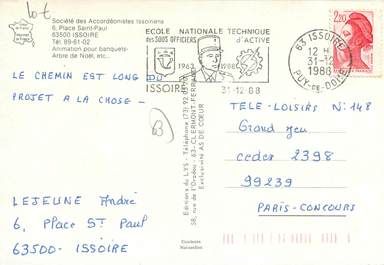 10 F
Société des Accordéonistes Issoiriens
6, Place Saint-Paul
63500 ISSOIRE
Tél. 89-61-02
Animation pour banquets-
Arbre de Noël, etc...
ECOLE NATIONALE TECHNIQUE
des SOUS OFFICIERS D'ACTIVE
1963 1988
ISSOIRE 31-12-88
63 ISSOIRE
12 H
31-12
1988
PUY-DE-DOME
2,20
LE CHEMIN EST LONG DU
PROJET A LA CHOSE -
63
LEJEUNE André
6, Place St Paul
63500 - ISSOIRE
Editions du LYS - Téléphone (73) 92
58, rue de l'Oradou - 63-CLERMONT-FERRAND
Exclusivité AS DE COEUR
TELE-LOISIRS N° 148
Grand jeu
cedex 2398
99239
PARIS-CONCOURS